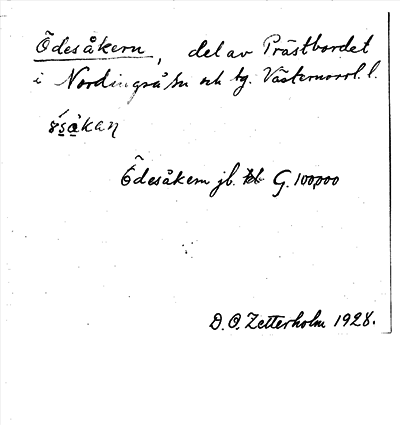 Ödesåkern, del av Prästbordet
i Nordingrå sn och tg. Västernorrl. l.
Ödesåkern jb. G. 100000
D. O. Zetterholm 1928.